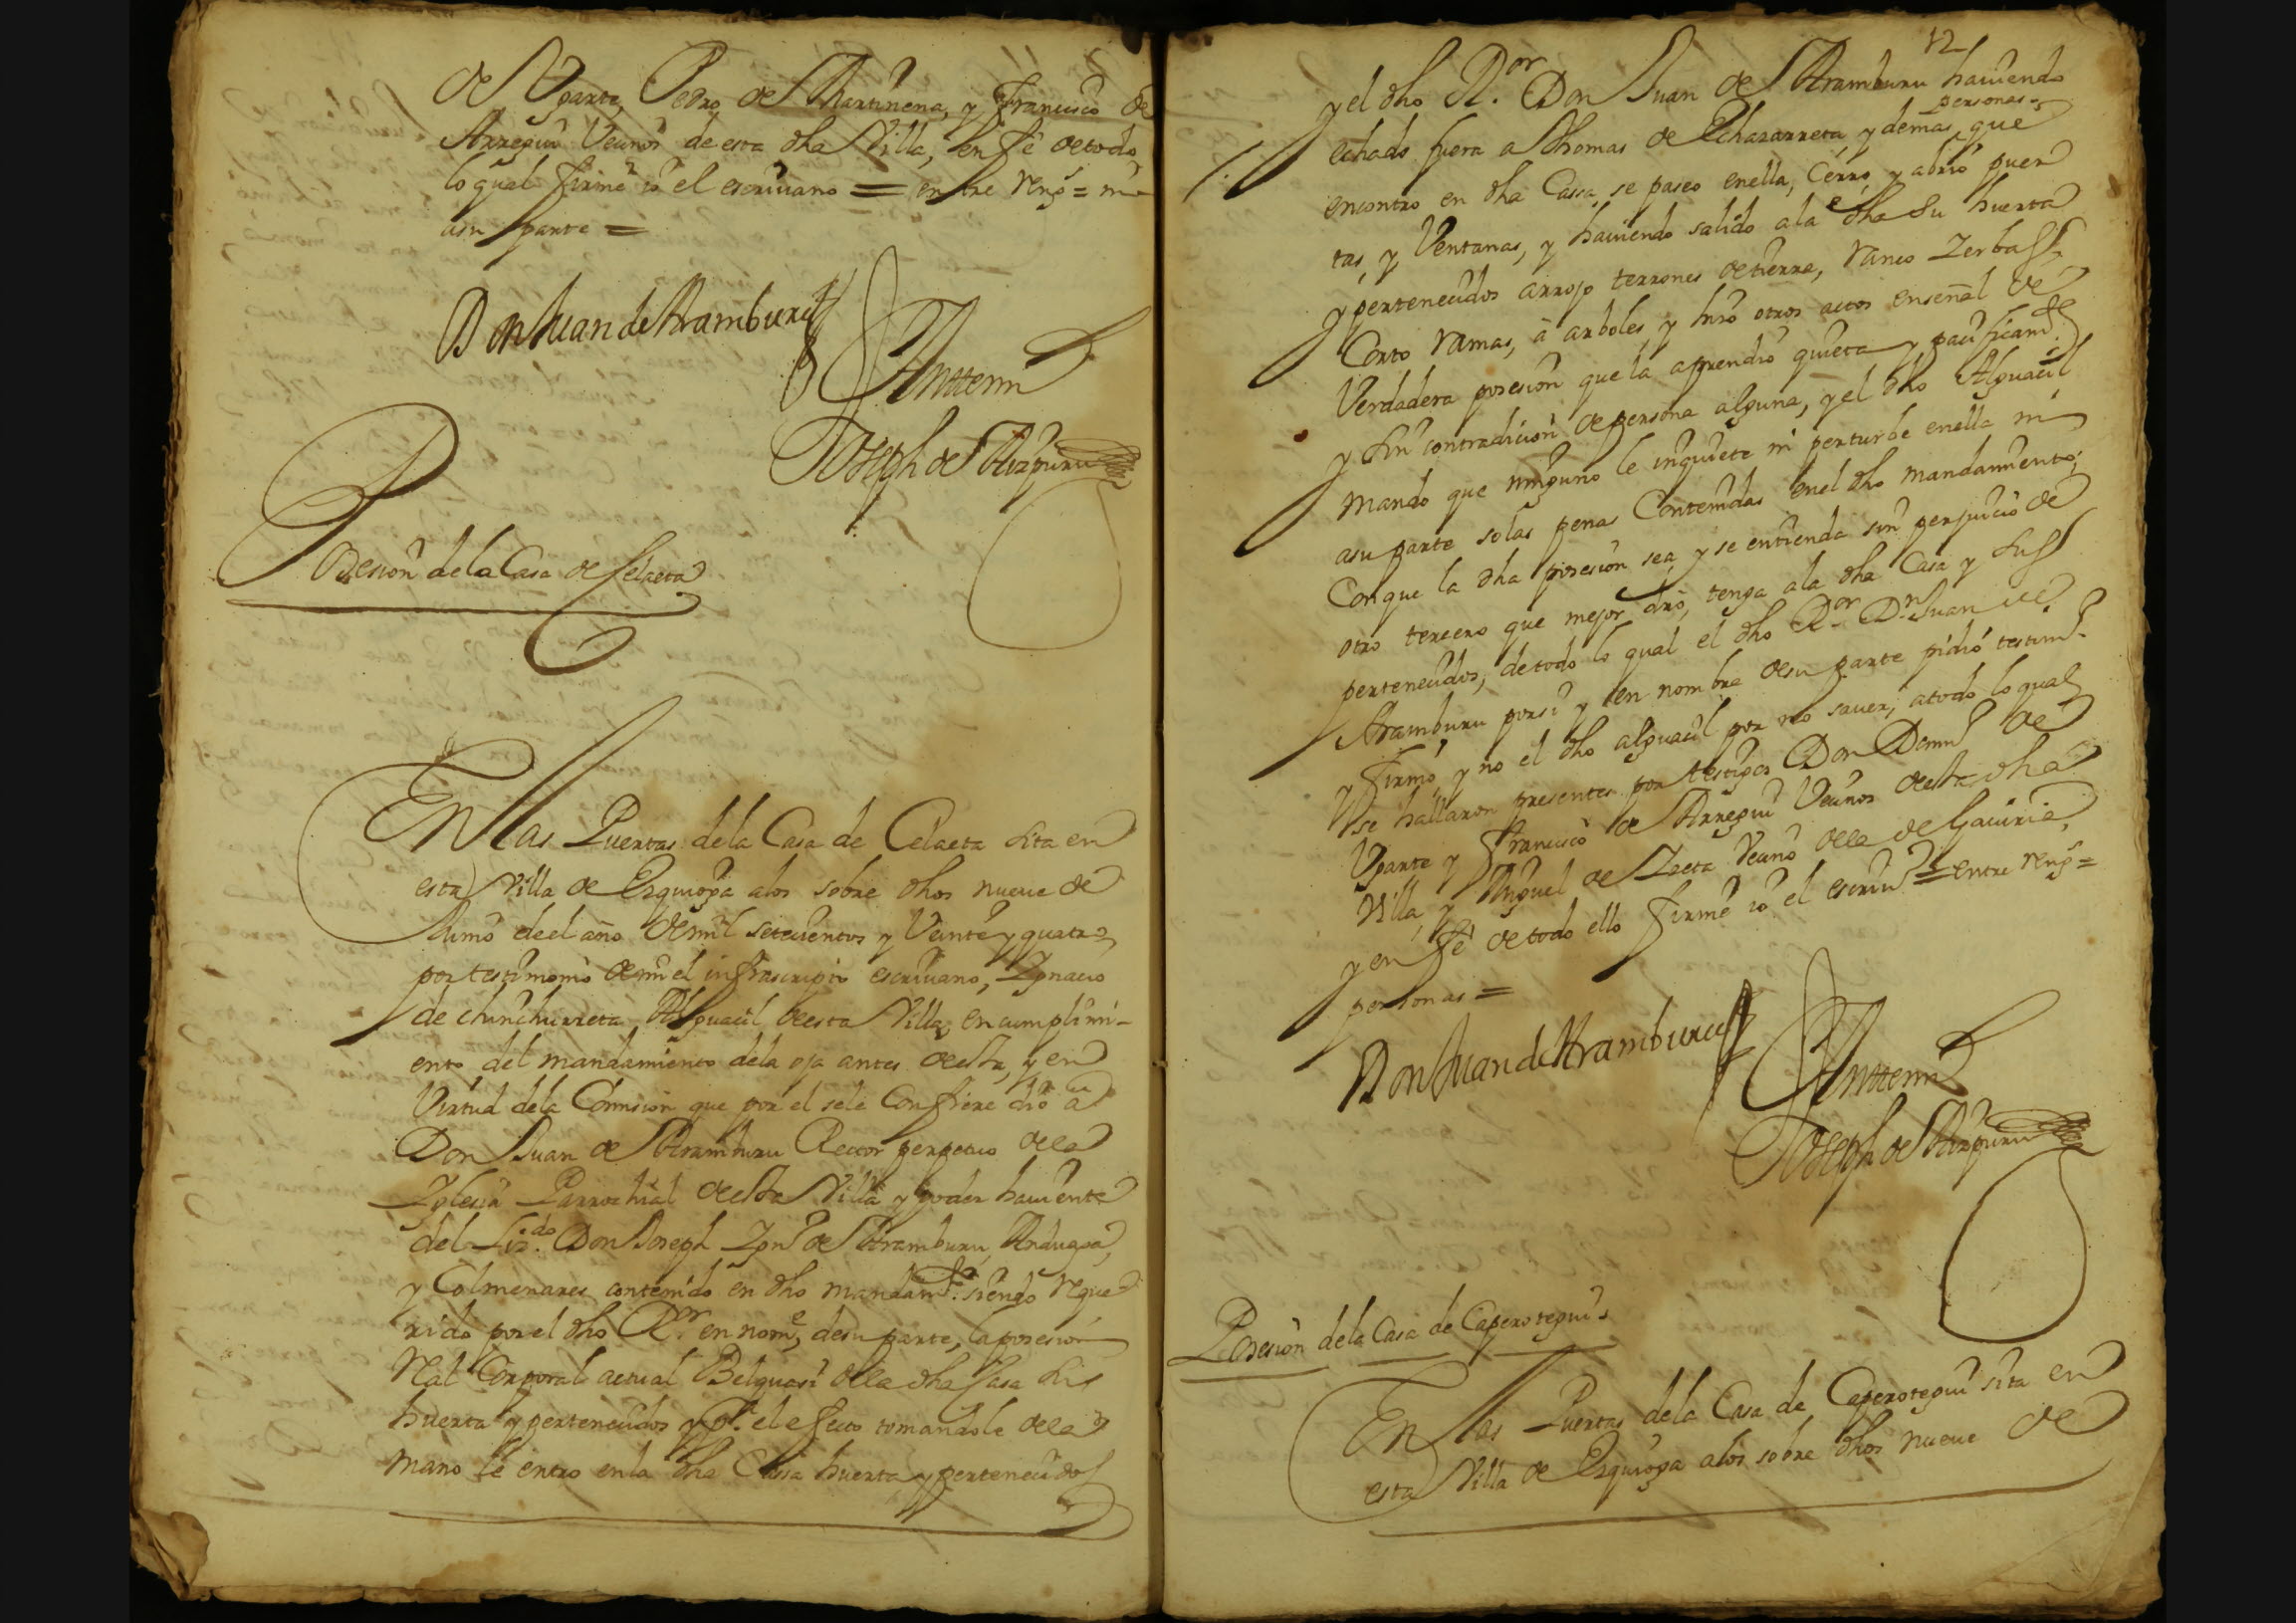 de Ugarte, Pedro de Martinena, y Francisco de
Arregui Vecinos de esta dha Villa, en fe de todo
lo qual firmé io el escriuano = entre rengs = ni
asu parte =
Don Juan de Aramburu
Antte mi
Joseph de Aizpuru
Posesion dela Casa de Celaeta
En las Puertas dela Casa de Celaeta sita en
esta Villa de Ezquioga alos sobre dhos nueue de
Junio deel año de mil setecientos y Veinte y quatro,
por testimonio de mi el infrascripto escriuano, Ignacio
de chinchurreta Alguacil de esta Villa, en cumplimi-
ento del mandamiento dela oja antes de esta, y en
Virtud dela Comision que por el sele Confiere dio a
Don Juan de Aramburu Rector perpetuo de la
Iglesia Parrochial de esta Villa y poder hauiente
del Lizdo. Don Joseph Ignº de Aramburu, Andugga,
y Colmenares contenido en dho mandamto. siendo reque
rido por el dho Ror. en nome, desu parte, la posesion
Real Corporal actual Belquasi dela dha Casa su
huerta y pertenecidos y pª. el efecto tomandole dela
mano le entro enla dha Cassa huerta y pertenecidos
12
y el dho Ror. Don Juan de Aramburu hauiendo
personas
echado fuera a Thomas de Echazarreta, y demas que
encontro en dha Cassa, se paseo enella, Cerro, y abrio puer
tas, y Ventanas, y hauiendo salido ala dha su huerta
y pertenecidos arrojo terrones de tierra, ranco Zerbas,
Corto ramas, â arboles, y hizo otros actos enseñal de
Verdadera posesion que la aprendio quieta y pacificamte.
y sin contradicion de persona alguna, y el dho Alguacil
mando que ninguno le inquiete ni perturbe enella ni
asu parte solas penas Contenidas enel dho mandamiento;
Conque la dha posesion sea, y se entienda sin perjuicio de
otro tercero que mejor dro, tenga ala dha Casa y sus
pertenecidos, de todo lo qual el dho Ror. Dn. Juan de
Aramburu porsi y en nombre desu parte pidió testimº.
y firmó, y no el dho alguacil por no sauer, atodo lo qual
se hallaron presentes por testigos Don Domº de
Ugarte y Francisco de Arregui Vecinos de esta dha
Villa, y Miguel de Zaeta Vecino dela de Gauiria,
y en fe de todo ello firmé io el escriuº = entre rengs =
personas =
Don Juan de Aramburu
Antte mi
Joseph de Aizpuru
Posesion dela Casa de Caperotegui
En las Puertas dela Casa de Caperotegui sita en
esta Villa de Ezquioga alos sobre dhos nueue de